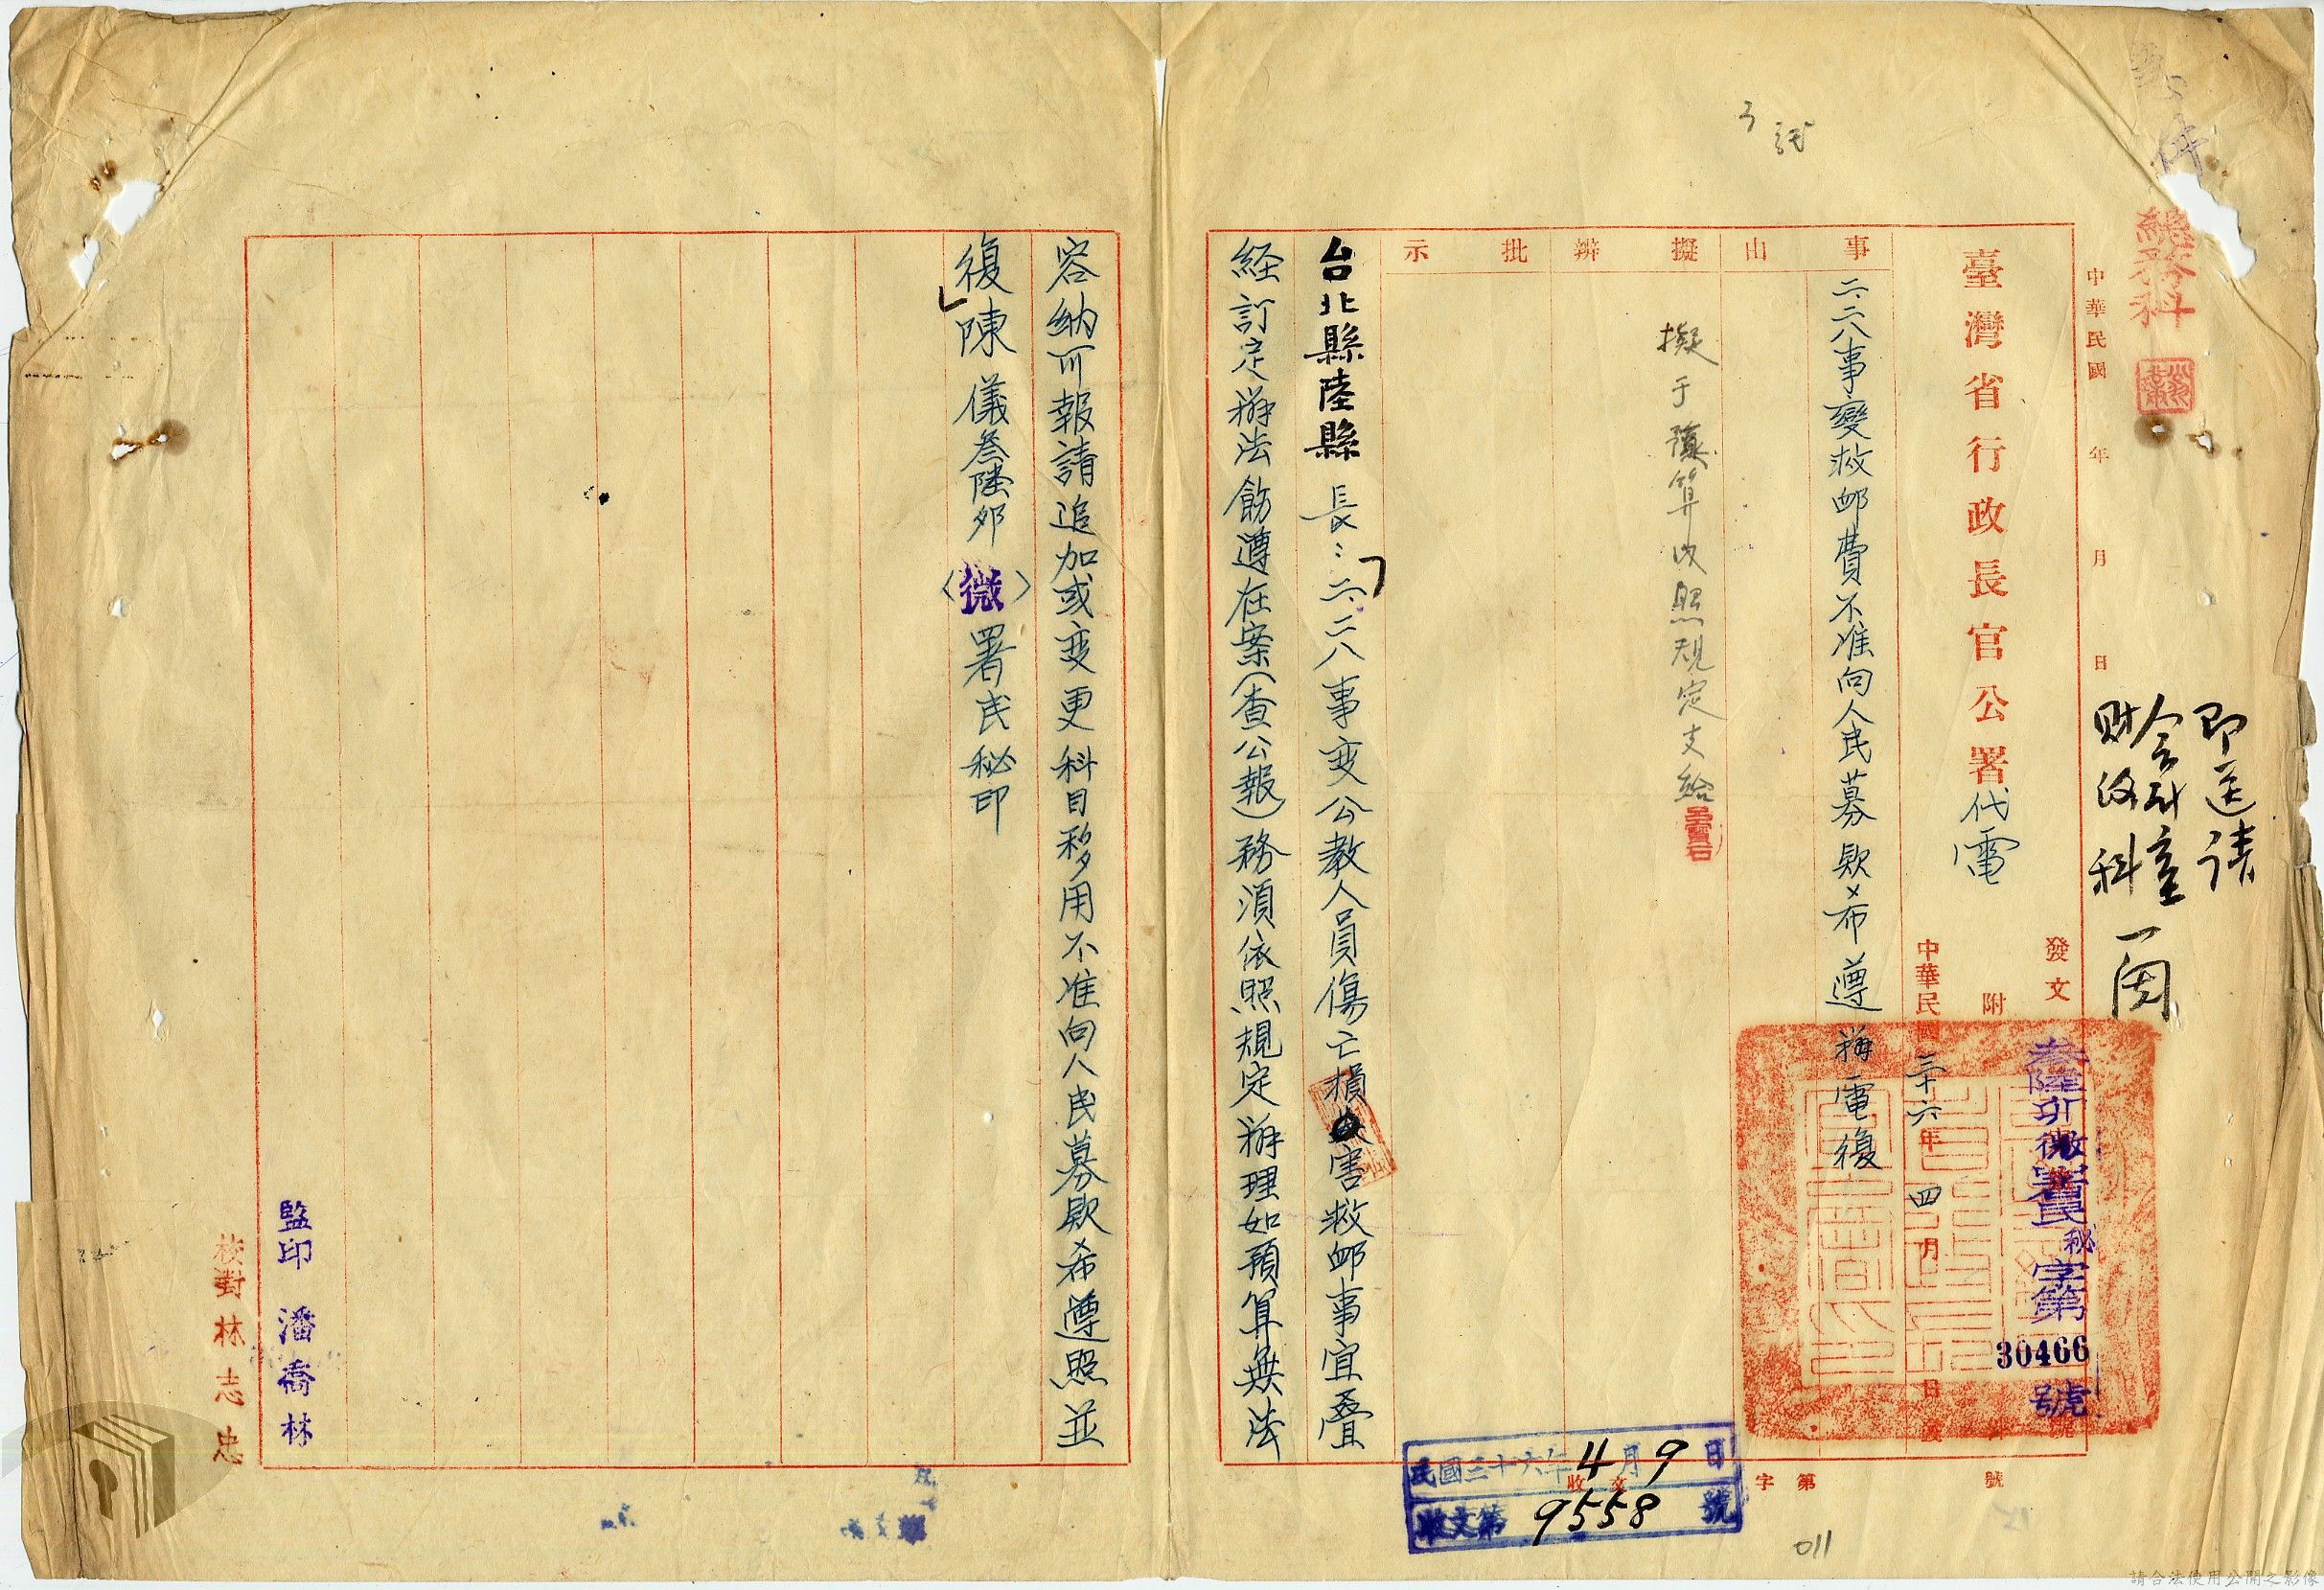 總務科
中華民國 年 月 日
即送請
會計室
財政科 一閱
臺灣省行政長官公署代電
發文 叁陸卯微署民秘字第30466號
附
中華民國三十六年四月 日
事由
二.二八事變救卹費不准向人民募款希遵辦電復
擬辦
擬于預算內照規定支給
吳寶石
批示
台北縣陸縣長:二.二八事变公教人員傷亡損害救卹事宜叠
経訂定辦法飭遵在案(查公報)務須依照規定辦理如預算無法
容納可報請追加或变更科目移用不准向人民募款希遵照並
復陳儀叁陸卯(微)署民秘印
監印 潘喬林
校對 林志忠
民國三十六年4月9日
收文第9558號
收文 字第 號
011
請合法使用公開之影像